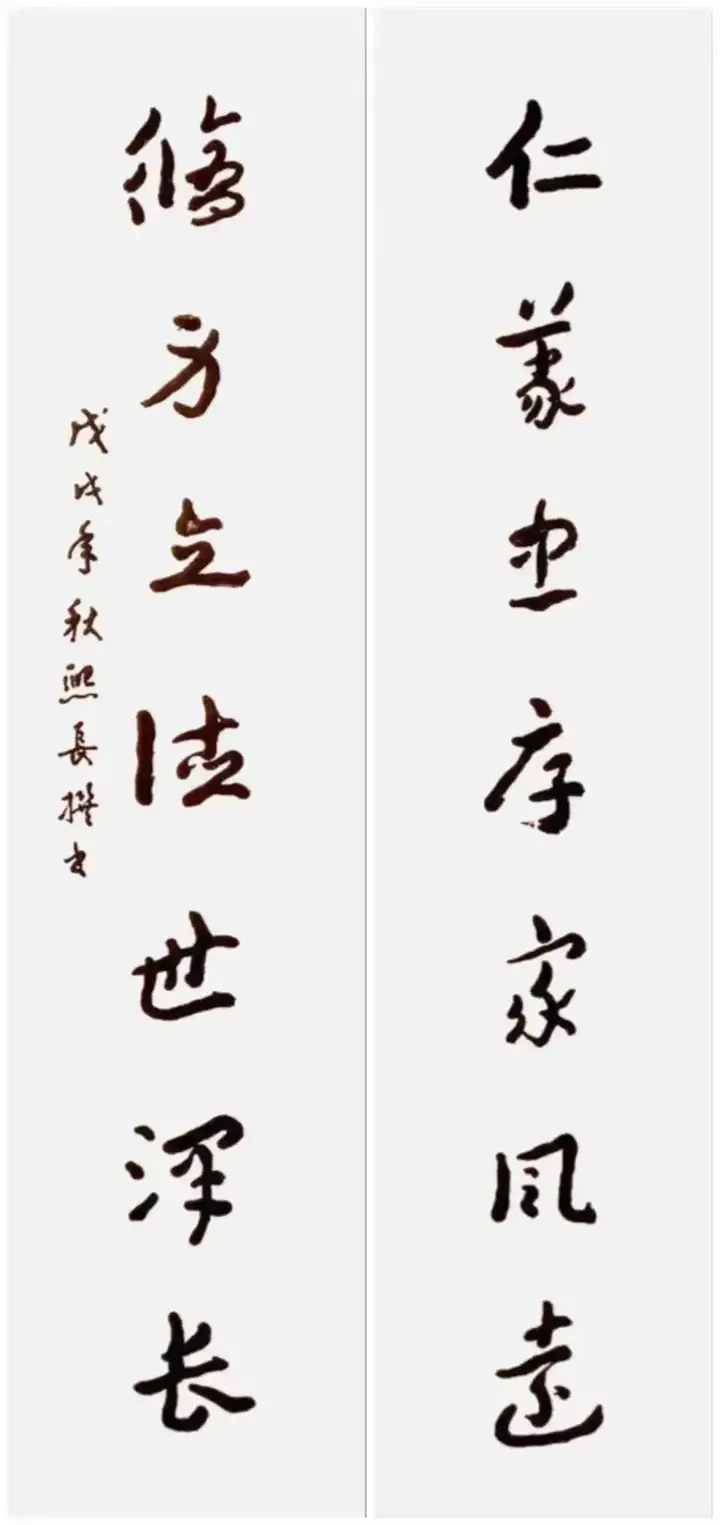 仁義忠厚家風遠
修身立德世澤长
戊戌年秋熙長撰书